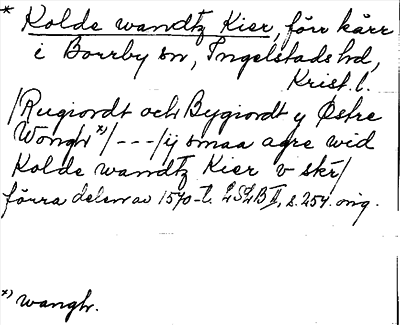 * Kolde wandtz Kier, förr kärr
i Borrby sn, Ingelstads hd,
Krist. l.
/Rugiordt och Bygiordt y Østre
Wongh *)/ - - - /ij smaa agre wid
Kolde wandtz Kier v skr/
förra delen av 1570-t. LSLB II, s. 254. orig.
*) wangh.